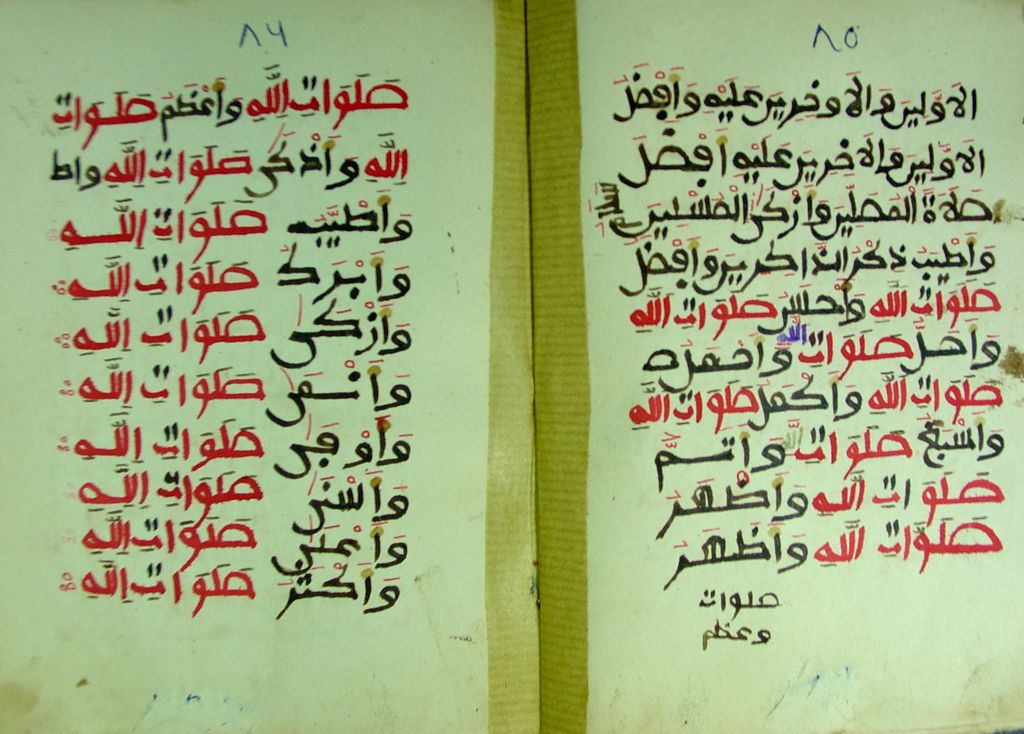 ٨٥
الاَوَّلِينَ وَالاَخِرِينَ عَلَيْهِ وَاَفْضَلَ
الاَوَّلِينَ وَالاَخِرِينَ عَلَيْهِ اَفْضَلَ
صَلَاةَ الْمُصَلِّينَ وَاَزْكَى الْمُسْلِمِينَ
سلام
وَاَطْيَبَ ذِكْرِ الذَّاكِرِينَ وَاَفْضَلَ
صَلَوَاتِ اللَّهِ وَاَحْسَنَ صَلَوَاتِ اللَّهِ
وَاَجَلَّ صَلَوَاتِ الله وَاَجْمَلَ
صَلَوَاتِ اللَّهِ وَاَكْمَلَ صَلَوَاتِ اللَّهِ
وَاَسْبَغَ صَلَوَاتِ الله وَاَتَمَّ
صَلَوَاتِ اللَّهِ وَاَظْهَرَ
صَلَوَاتِ اللَّهِ وَاَظْهَرَ
صلوات
وعظم
٨٤
صَلَوَاتِ اللَّهِ وَاَعْظَمَ صَلَوَاتِ
اللَّهِ وَاَذْكَى صَلَوَاتِ اللَّهِ واط
وَاَطْيَبَ صَلَوَاتِ اللَّهِ
وَاَبْرَكَ صَلَوَاتِ اللَّهِ
وَاَزْكَى صَلَوَاتِ اللَّهِ
وَاَنْمَى صَلَوَاتِ اللَّهِ
وَاَوْفَى صَلَوَاتِ اللَّهِ
وَاَسْنَى صَلَوَاتِ اللَّهِ
وَاَعْلَى صَلَوَاتِ اللَّهِ
وَاَكْثَرَ صَلَوَاتِ اللَّهِ